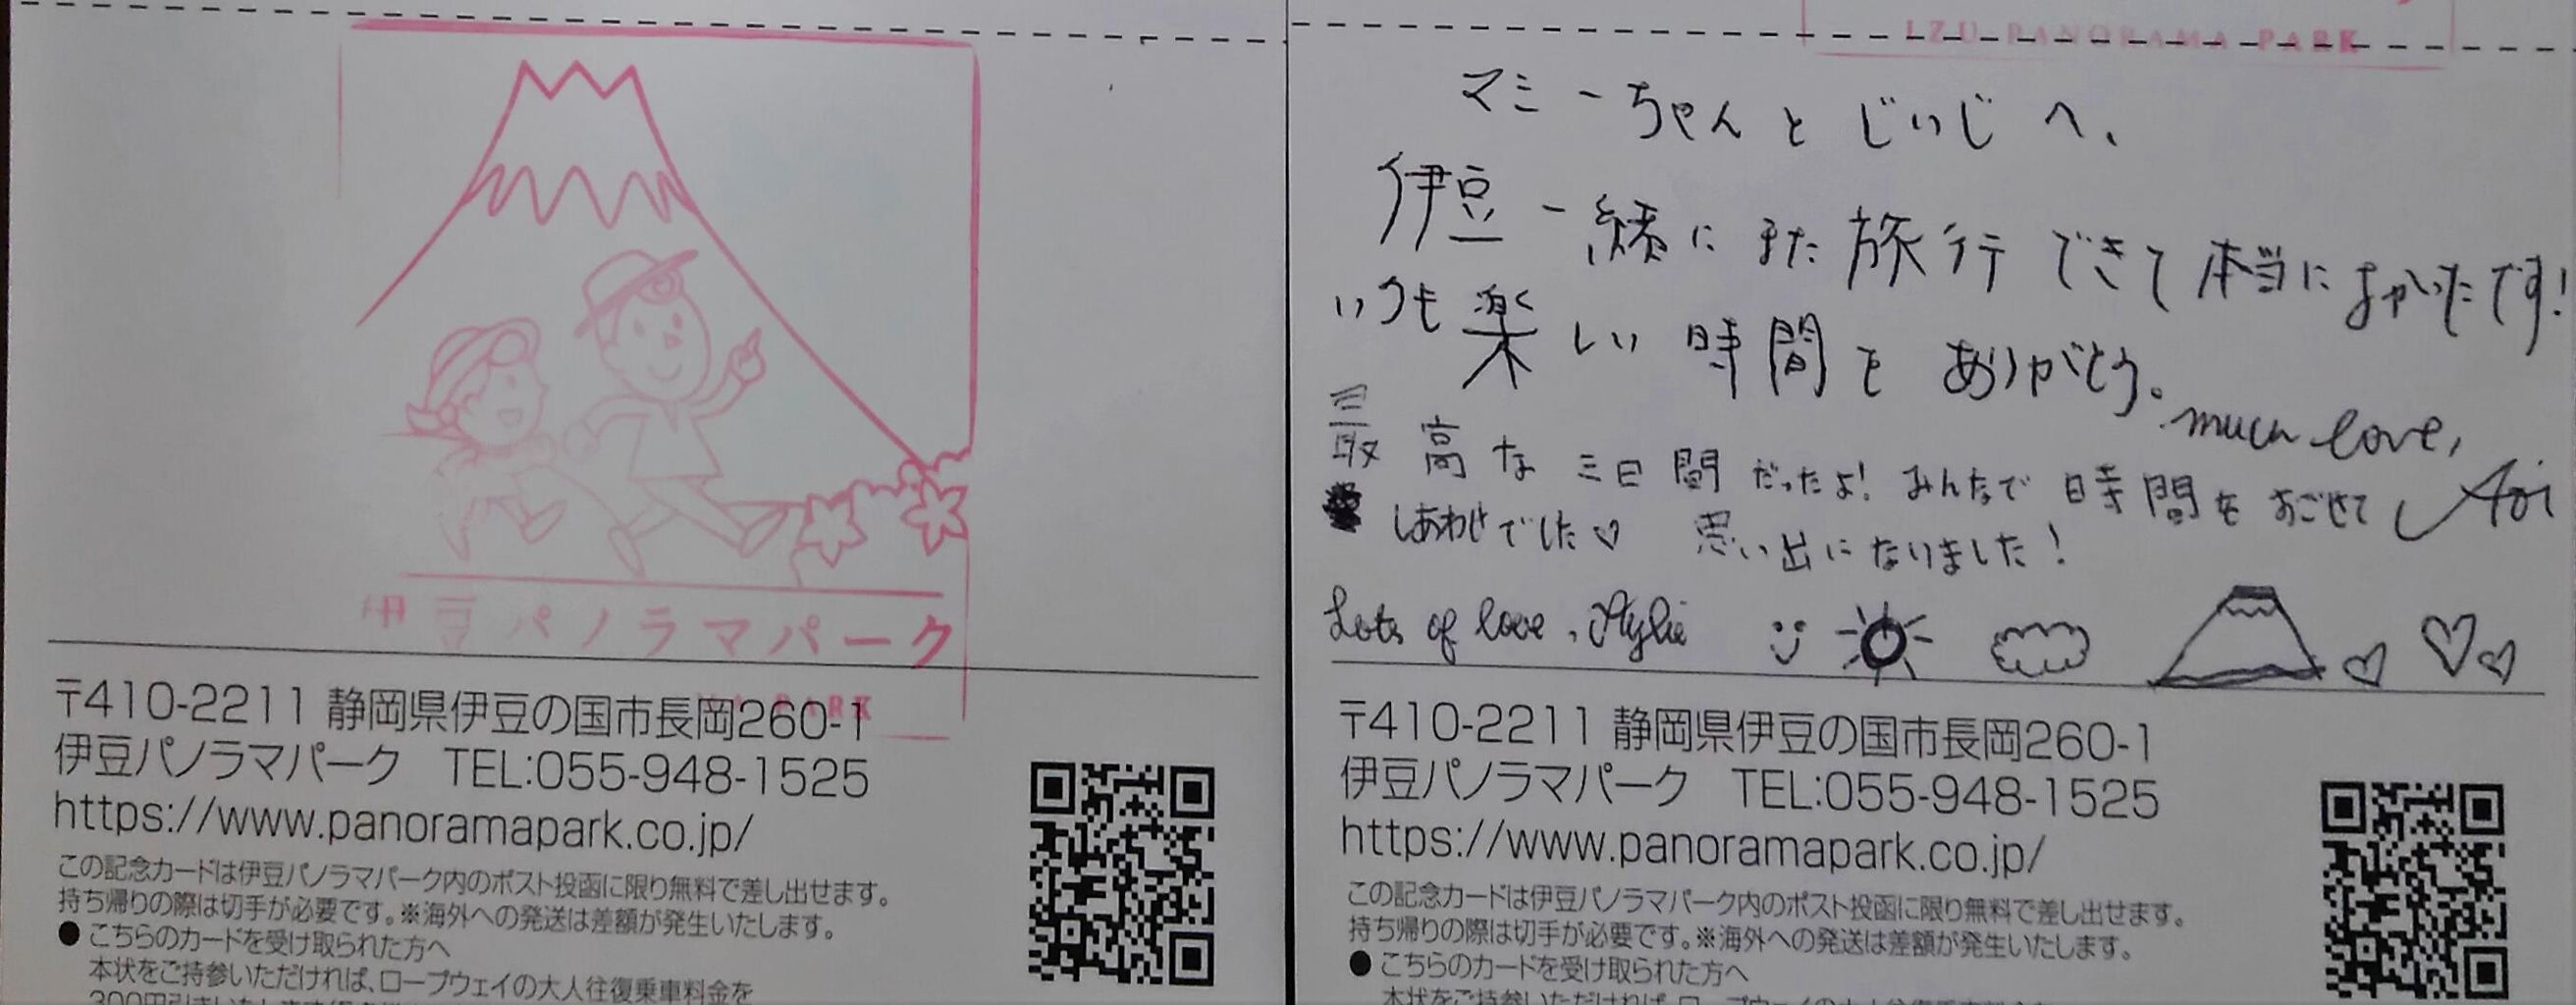 伊豆パノラマパーク
PARK
〒410-2211 静岡県伊豆の国市長岡260-1
伊豆パノラマパーク TEL:055-948-1525
https://www.panoramapark.co.jp/
この記念カードは伊豆パノラマパーク内のポスト投函に限り無料で差し出せます。
持ち帰りの際は切手が必要です。※海外への発送は差額が発生いたします。
●こちらのカードを受け取られた方へ
本状をご持参いただければ、ロープウェイの大人往復乗車料金を
IZU PANORAMA PARK
マミーちゃんとじいじへ、
伊豆一緒にまた旅行できて本当によかったです!
いつも楽しい時間をありがとう。
much love,
Aoi
最高な三日間だったよ! みんなで時間をすごせて
しあわせでした♡ 思い出になりました!
Lots of love,
〒410-2211 静岡県伊豆の国市長岡260-1
伊豆パノラマパーク TEL:055-948-1525
https://www.panoramapark.co.jp/
この記念カードは伊豆パノラマパーク内のポスト投函に限り無料で差し出せます。
持ち帰りの際は切手が必要です。※海外への発送は差額が発生いたします。
●こちらのカードを受け取られた方へ